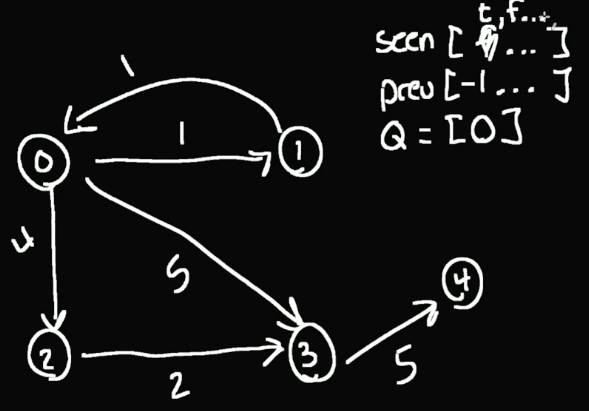 t, f...
seen [ ... ]
prev [-1 ... ]
Q = [0]
1
0
1
1
4
5
4
2
2
3
5